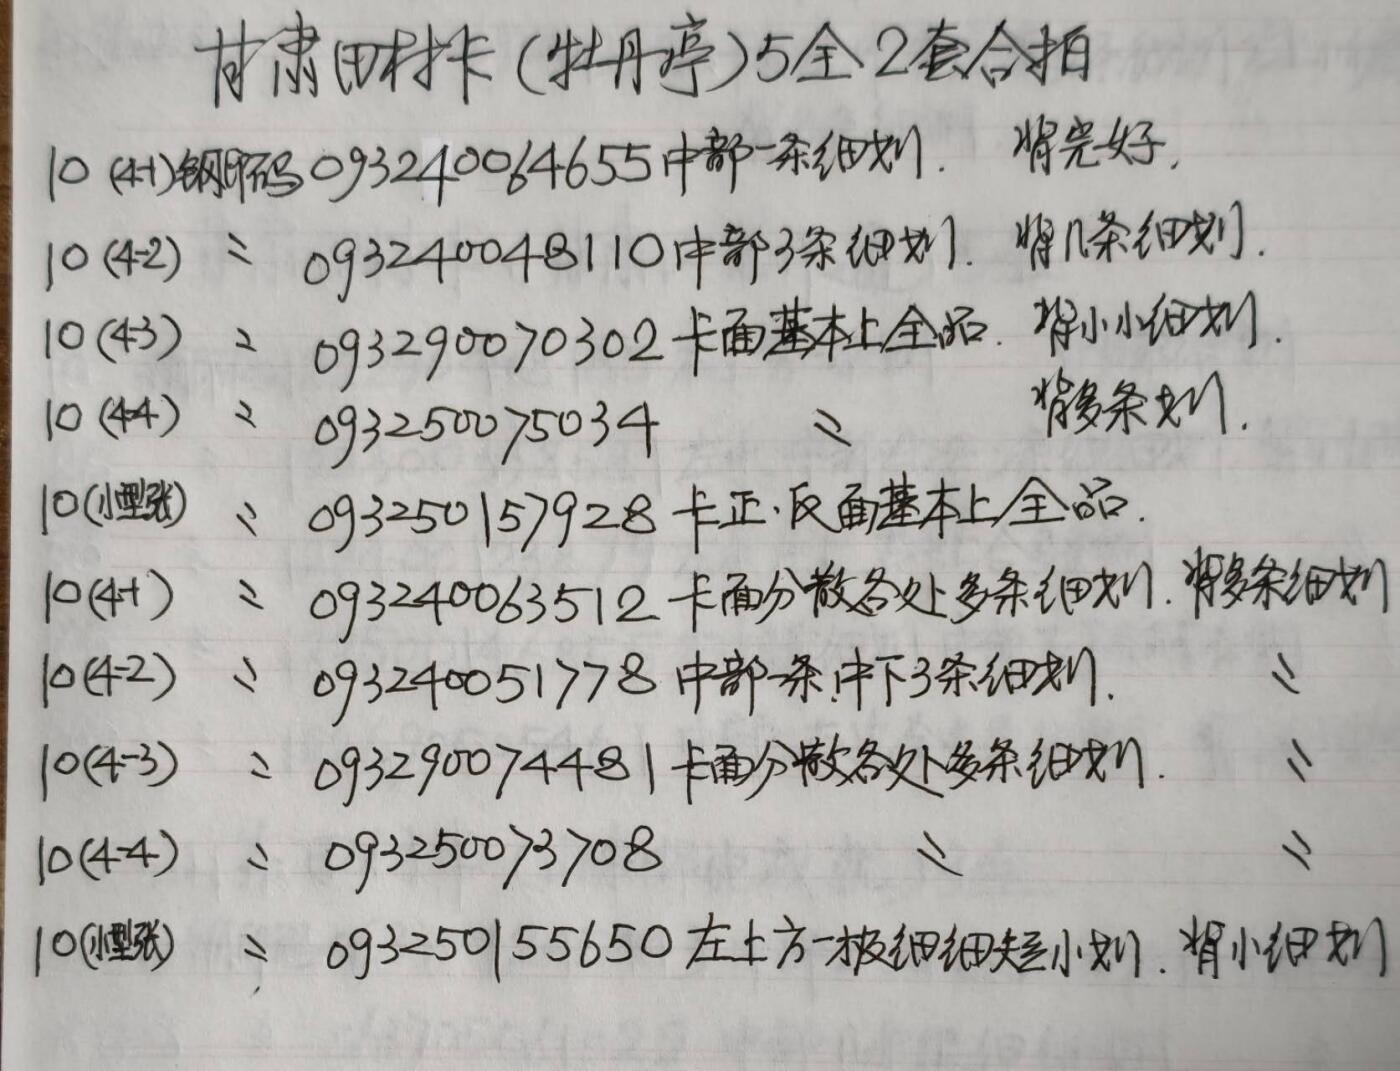 甘肃田村卡（牡丹亭）5全2套合拍
10(4-1)钢印码093240064655中部一条细划. 背完好.
10(4-2) 〃 093240048110中部3条细划. 背几条细划.
10(4-3) 〃 093290070302卡面基本上全品. 背小小细划.
10(4-4) 〃 093250075034 〃 背多条划.
10(小型张) 〃 093250157928卡正.反面基本上全品.
10(4-1) 〃 093240063512卡面分散各处多条细划. 背多条细划
10(4-2) 〃 093240051778中部一条.中下3条细划. 〃
10(4-3) 〃 093290074481卡面分散各处多条细划. 〃
10(4-4) 〃 093250073708 〃 〃
10(小型张) 〃 093250155650左上方一极细细短小划. 背小细划